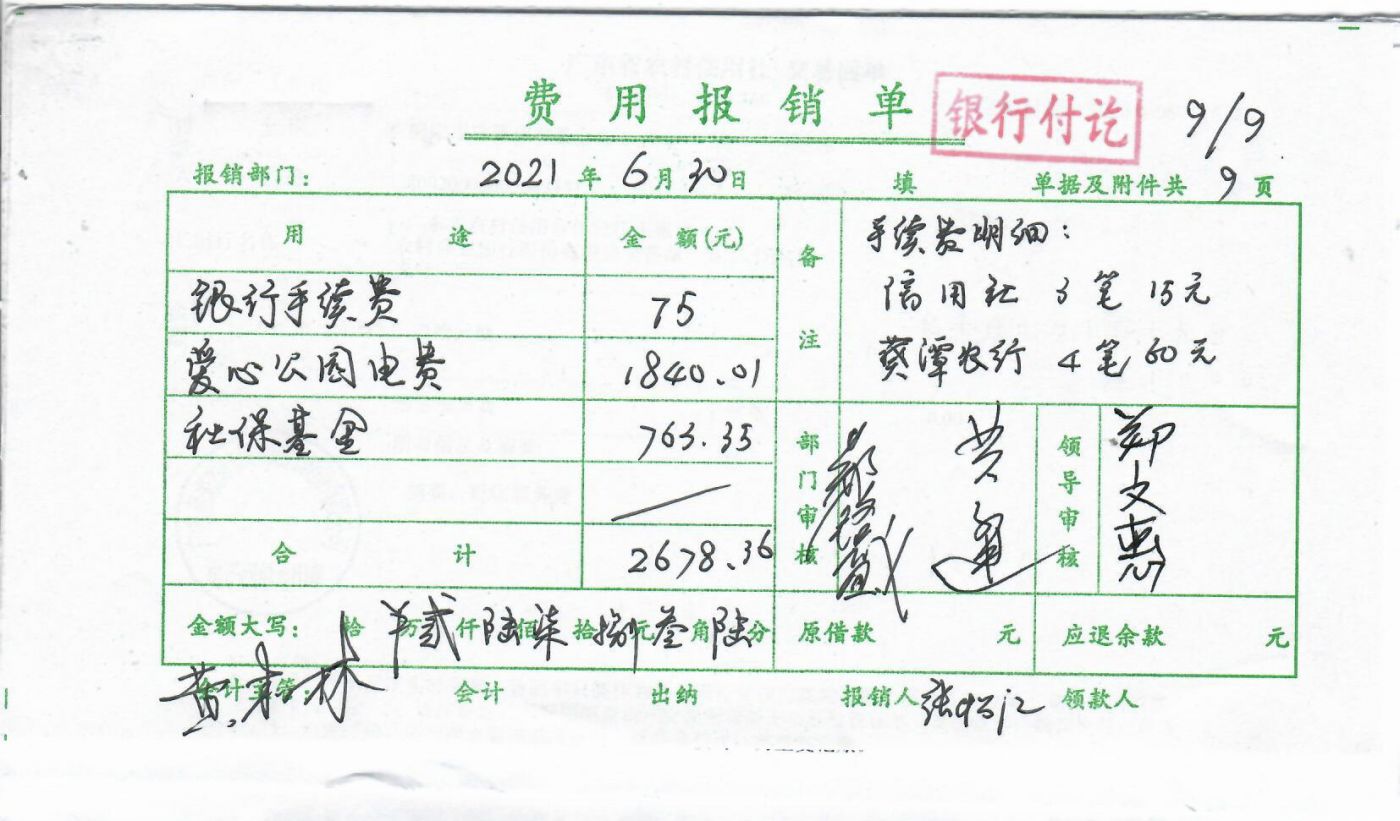 费用报销单
银行付讫
9/9
报销部门： 2021年6月30日 填 单据及附件共9页
用途 金额(元) 备注
手续费明细：
银行手续费 75
信用社 3笔 15元
爱心公园电费 1840.01
葵潭农行 4笔60元
社保基金 763.35
部门审核
领导审核 郑文惠
合计 2678.36
金额大写： 拾 万 贰仟陆佰柒拾捌元叁角陆分 原借款 元 应退余款 元
会计主管： 会计 出纳 报销人 领款人